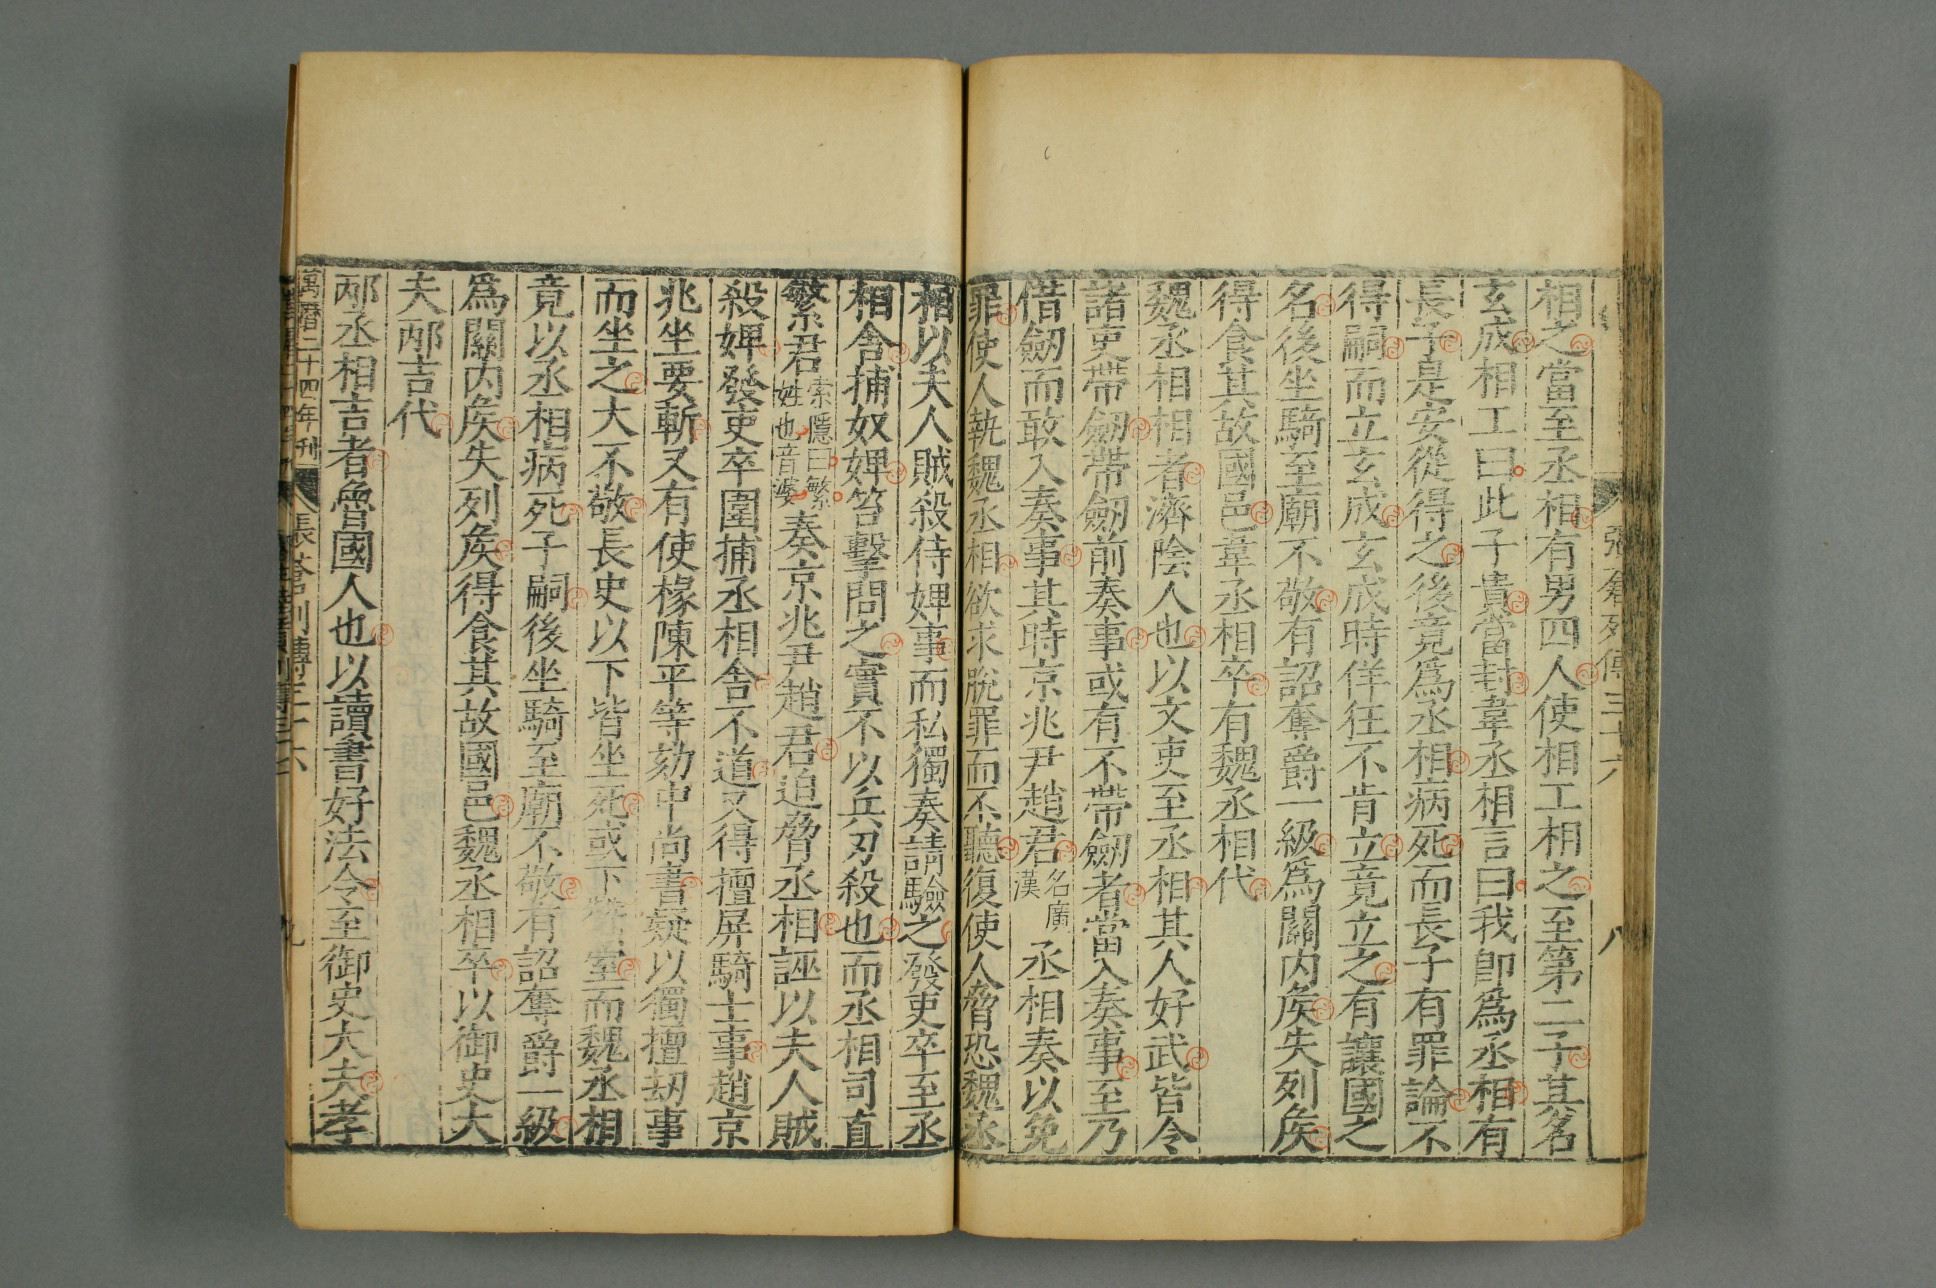 張蒼列傳三十六
八
相之當至丞相有男四人使相工相之至第二子其名
玄成相工曰此子貴當封韋丞相言曰我卽爲丞相有
長子是安從得之後竟爲丞相病死而長子有罪論不
得嗣而立玄成玄成時佯狂不肯立竟立之有讓國之
名後坐騎至廟不敬有詔奪爵一級爲關内矦失列矦
得食其故國邑韋丞相卒有魏丞相代
魏丞相相者濟陰人也以文吏至丞相其人好武皆令
諸吏帶劒帶劒前奏事或有不帶劒者當入奏事至乃
借劒而敢入奏事其時京兆尹趙君漢名廣丞相奏以免
罪使人執魏丞相欲求脫罪而不聽復使人脅恐魏丞
相以夫人賊殺侍婢事而私獨奏請驗之發吏卒至丞
相舍捕奴婢笞擊問之實不以兵刃殺也而丞相司直
繁君索隱曰繁姓也音婆奏京兆尹趙君迫脅丞相誣以夫人賊
殺婢發吏卒圍捕丞相舍不道又得擅屏騎士事趙京
兆坐要斬又有使掾陳平等劾中尚書疑以獨擅刼事
而坐之大不敬長史以下皆坐死或下蠶室而魏丞相
竟以丞相病死子嗣後坐騎至廟不敬有詔奪爵一級
爲關内矦失列矦得食其故國邑魏丞相卒以御史大
夫邴吉代
邴丞相吉者魯國人也以讀書好法令至御史大夫孝
萬曆二十四年刊
張蒼列傳三十六
九